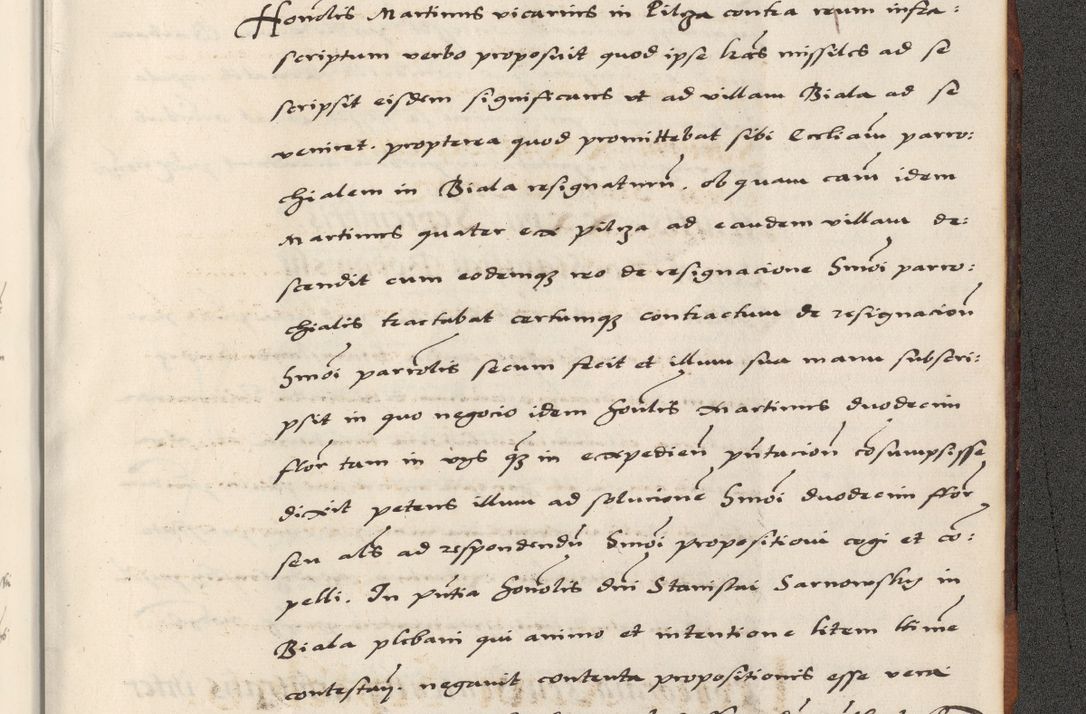 Honolis Martinus vicarius in Pilza contra reum infra:
scriptum verbo proposuit quod ipse lras missiles ad se
scripsit eisdem significans ut ad villam Biala ad se
veniret. propterea quod promittebat sibi Eccliam parro:
chialem in Biala resignaturu. ob quam cam idem
Martinus quater ex pilza ad eandem villam de:
scendit cum eodemq reo de resignacione hmoi parro:
chialis tractabat certumq contractum de resignacion
hmoi parrolis secum fecit et illum sua manu subscri:
psit in quo negocio idem honlis Martinus duodecim
flor tam in vys q in expedien pntacion cosumpsisse
dixit petens illum ad solucione hmoi duodecim flor
seu als ad respondendu hmoi propositioni cogi et co:
pelli. In pntia honolis dni Stanislai Sarnowsky in
Biala plebani qui animo et intentione litem ltime
contestan. negavit contenta propositionis esse vera